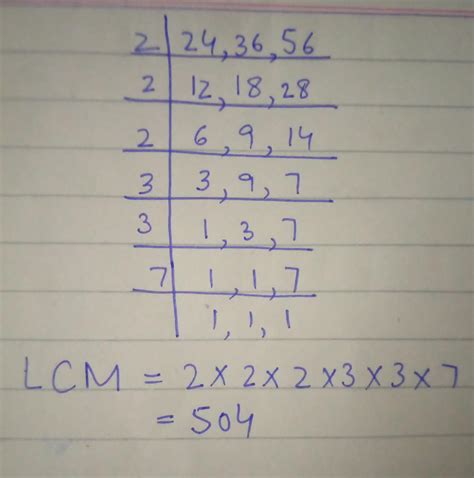 2 | 24, 36, 56
2 | 12, 18, 28
2 | 6, 9, 14
3 | 3, 9, 7
3 | 1, 3, 7
7 | 1, 1, 7
| 1, 1, 1
LCM = 2 × 2 × 2 × 3 × 3 × 7
= 504